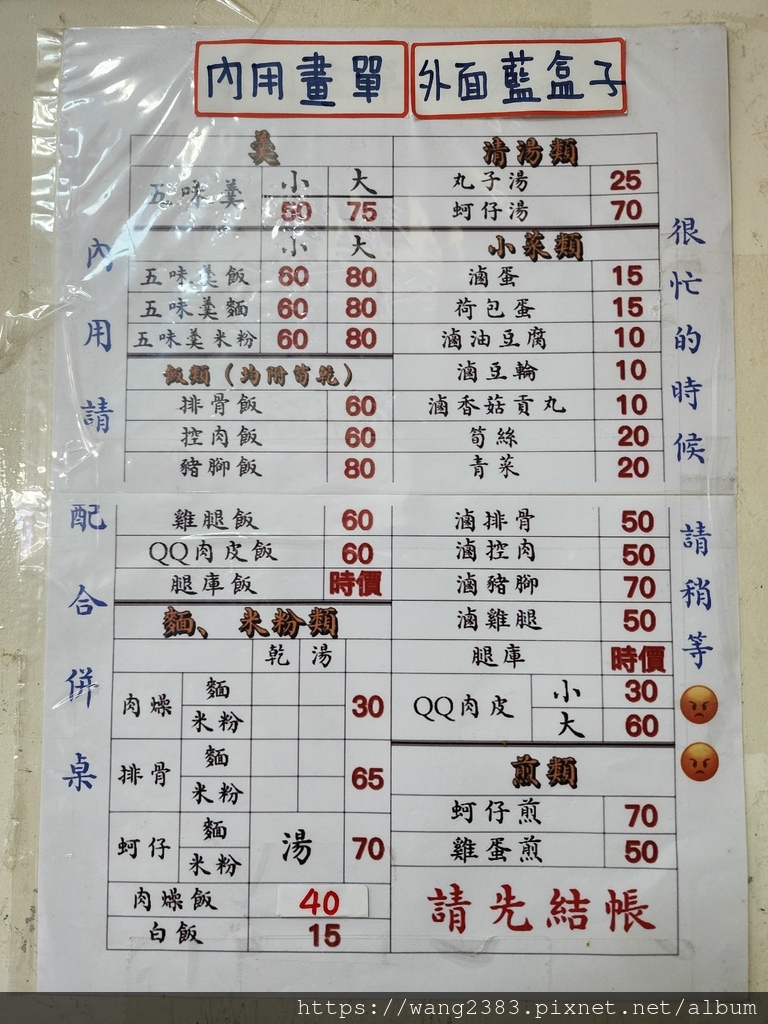 內用畫單 外面藍盒子
內用請配合併桌
羹
五味羹 小 大
50 75
小 大
五味羹飯 60 80
五味羹麵 60 80
五味羹米粉 60 80
飯類(均附筍乾)
排骨飯 60
控肉飯 60
豬腳飯 80
雞腿飯 60
QQ肉皮飯 60
腿庫飯 時價
麵、米粉類
乾 湯
肉燥 麵 米粉 30
排骨 麵 米粉 65
蚵仔 麵 米粉 湯 70
肉燥飯 40
白飯 15
清湯類
丸子湯 25
蚵仔湯 70
小菜類
滷蛋 15
荷包蛋 15
滷油豆腐 10
滷豆輪 10
滷香菇貢丸 10
筍絲 20
青菜 20
滷排骨 50
滷控肉 50
滷豬腳 70
滷雞腿 50
腿庫 時價
QQ肉皮 小 30
大 60
煎類
蚵仔煎 70
雞蛋煎 50
請先結帳
很忙的時候請稍等
https://wang2383.pixnet.net/album